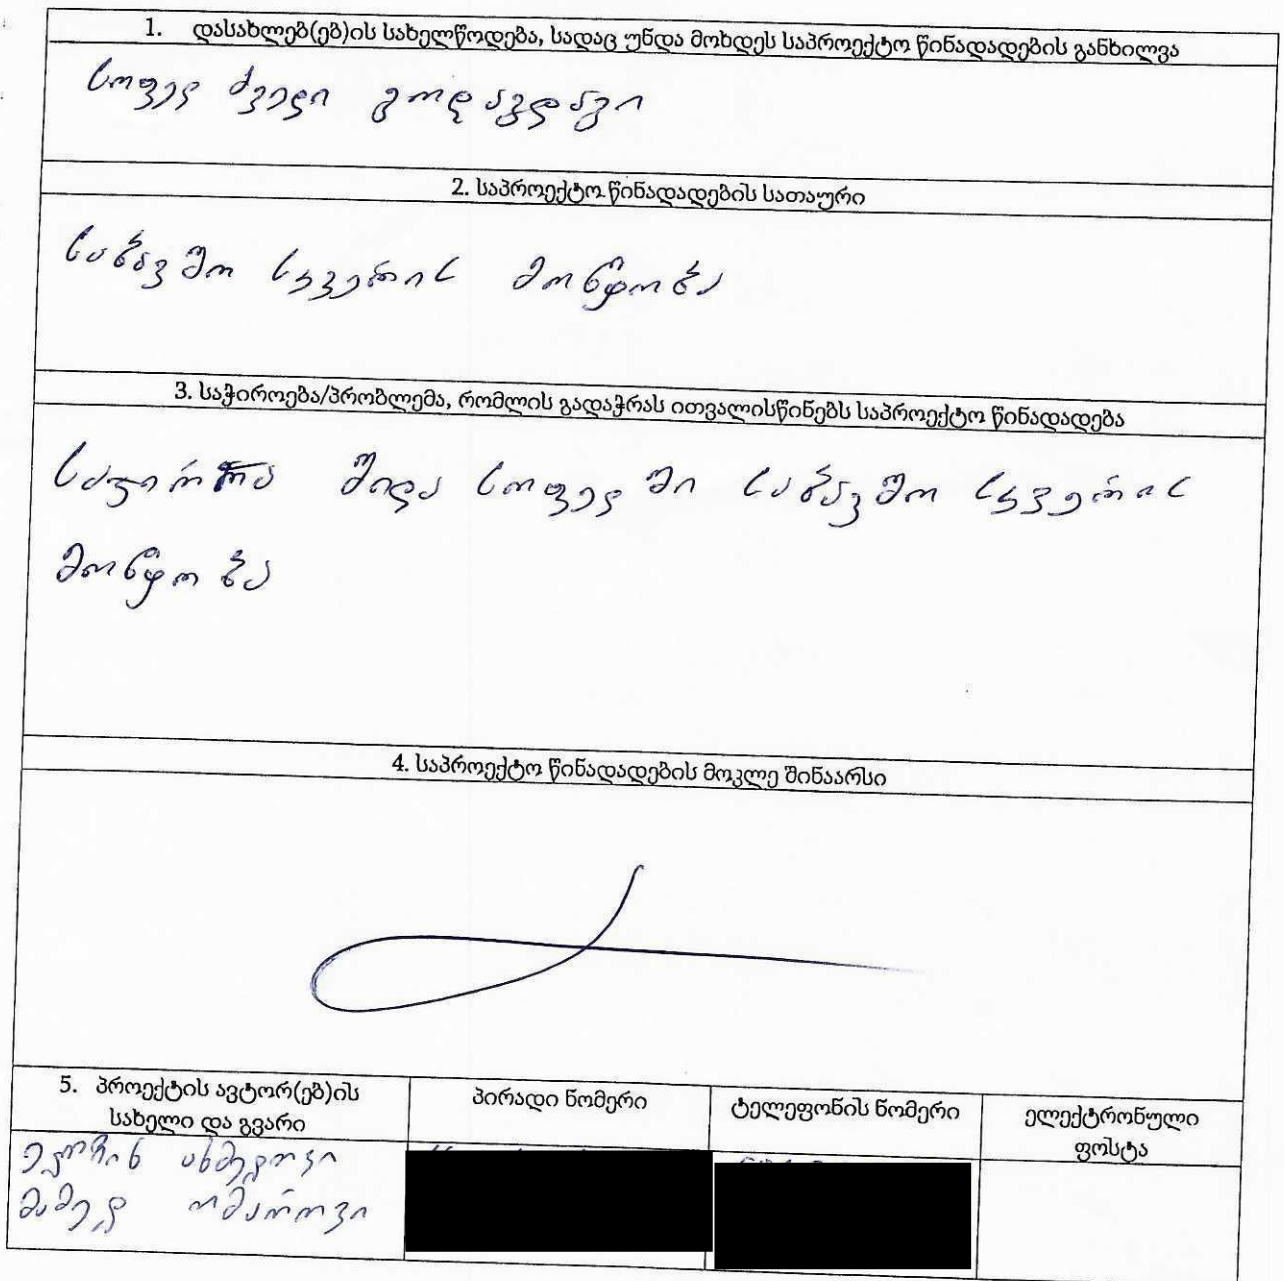 1. დასახლებ(ებ)ის სახელწოდება, სადაც უნდა მოხდეს საპროექტო წინადადების განხილვა
სოფელ ძველი გოდაგდაგი
2. საპროექტო წინადადების სათაური
საბავშო სკვერის მოწყობა
3. საჭიროება/პრობლემა, რომლის გადაჭრას ითვალისწინებს საპროექტო წინადადება
შიდა სოფელში საბავშო სკვერის
მოწყობა
4. საპროექტო წინადადების მოკლე შინაარსი
5. პროექტის ავტორ(ებ)ის სახელი და გვარი
პირადი ნომერი
ტელეფონის ნომერი
ელექტრონული ფოსტა
ახმედოვი
მამედ ომაროვი